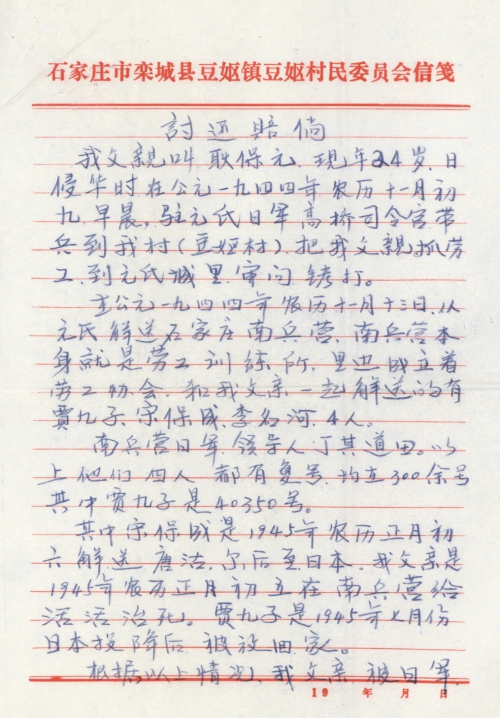 石家庄市栾城县豆妪镇豆妪村民委员会信笺
討还賠倘
我父親叫、耿保元、現年24岁、日
侵华时在公元一九四四年农历十一月初
九、早晨，駐元氏日軍高桥司令官、带
兵到我村（豆妪村）、把我父親抓劳
工、到元氏城里、审问、拷打。
在公元一九四四年农历十一月十三日、从
元氏解送石家庄南兵营、南兵营本
身就是劳工训練所、里边、成立着
劳工协会、和我父亲、一起解送的有
賈九子、宋保成、李名河、4人。
南兵营日軍、领导人、丁其道田。以
上他们四人、都有复号、均在300余号
其中賈九子是40350号。
其中宋保成是1945年农历正月初
六解送唐沽、尔后至日本、我父亲是
1945年农历正月初五在南兵营给
活活治死。賈九子是1945年七月份
日本投降后、被放回家。
根据以上情况、我父亲、被日軍、
19 年 月 日